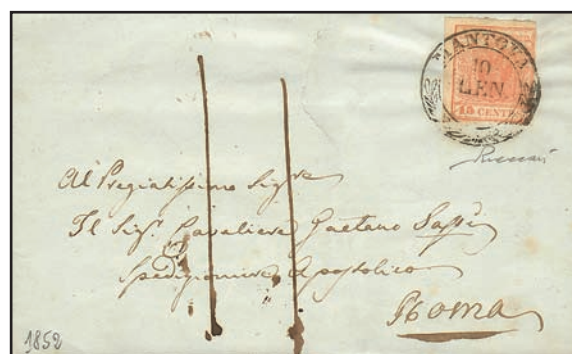 MANTOVA
10
GEN.
15 CENTES
Al Pregiatissimo Sigre
Il Sigr. Cavaliere Gaetano Sassi
Spedizioniere Apostolico
Roma
1852